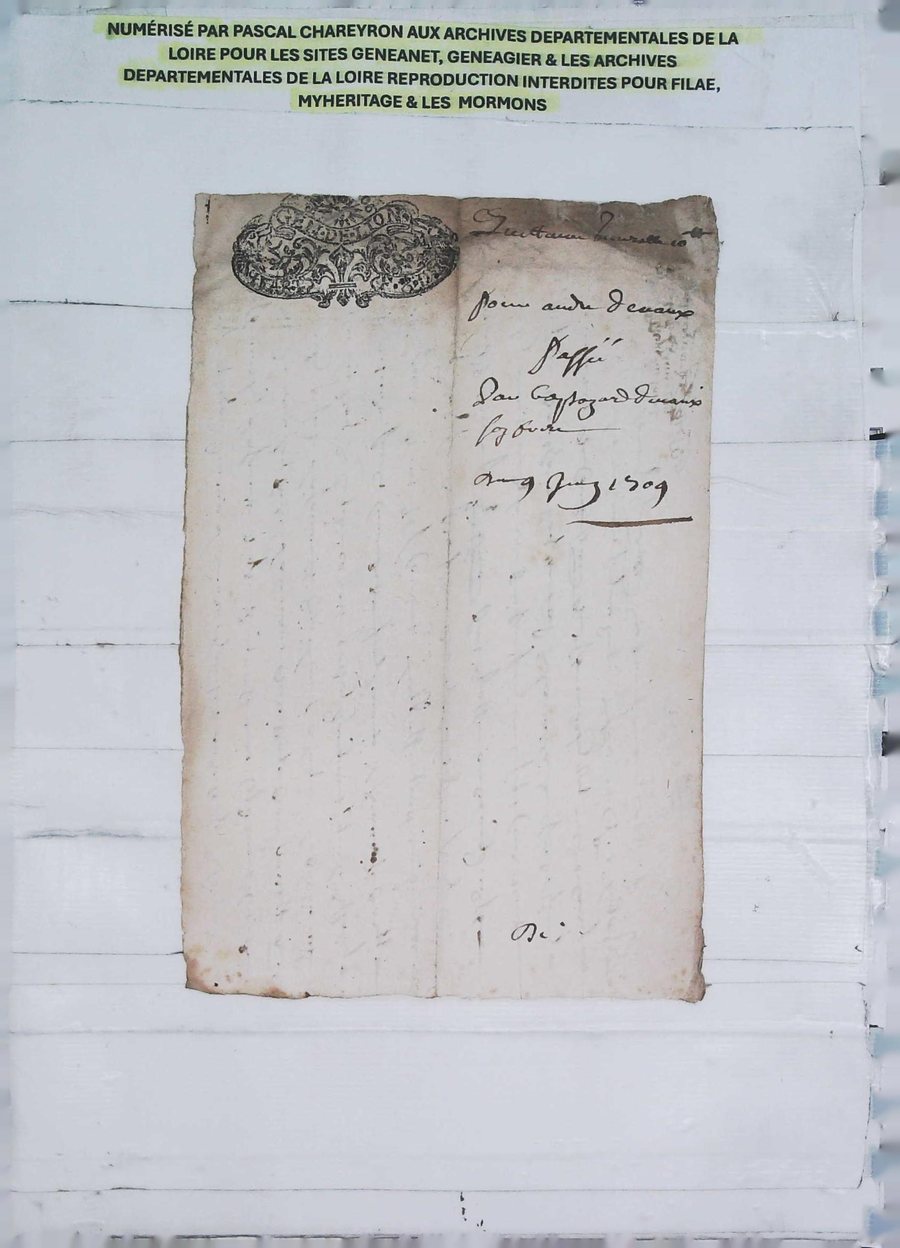 NUMÉRISÉ PAR PASCAL CHAREYRON AUX ARCHIVES DEPARTEMENTALES DE LA
LOIRE POUR LES SITES GENEANET, GENEAGIER & LES ARCHIVES
DEPARTEMENTALES DE LA LOIRE REPRODUCTION INTERDITES POUR FILAE,
MYHERITAGE & LES MORMONS
GEN. DE LION
Quittance
pour andre devaux
passée
par devaux
son frere
du 9 juin 1709